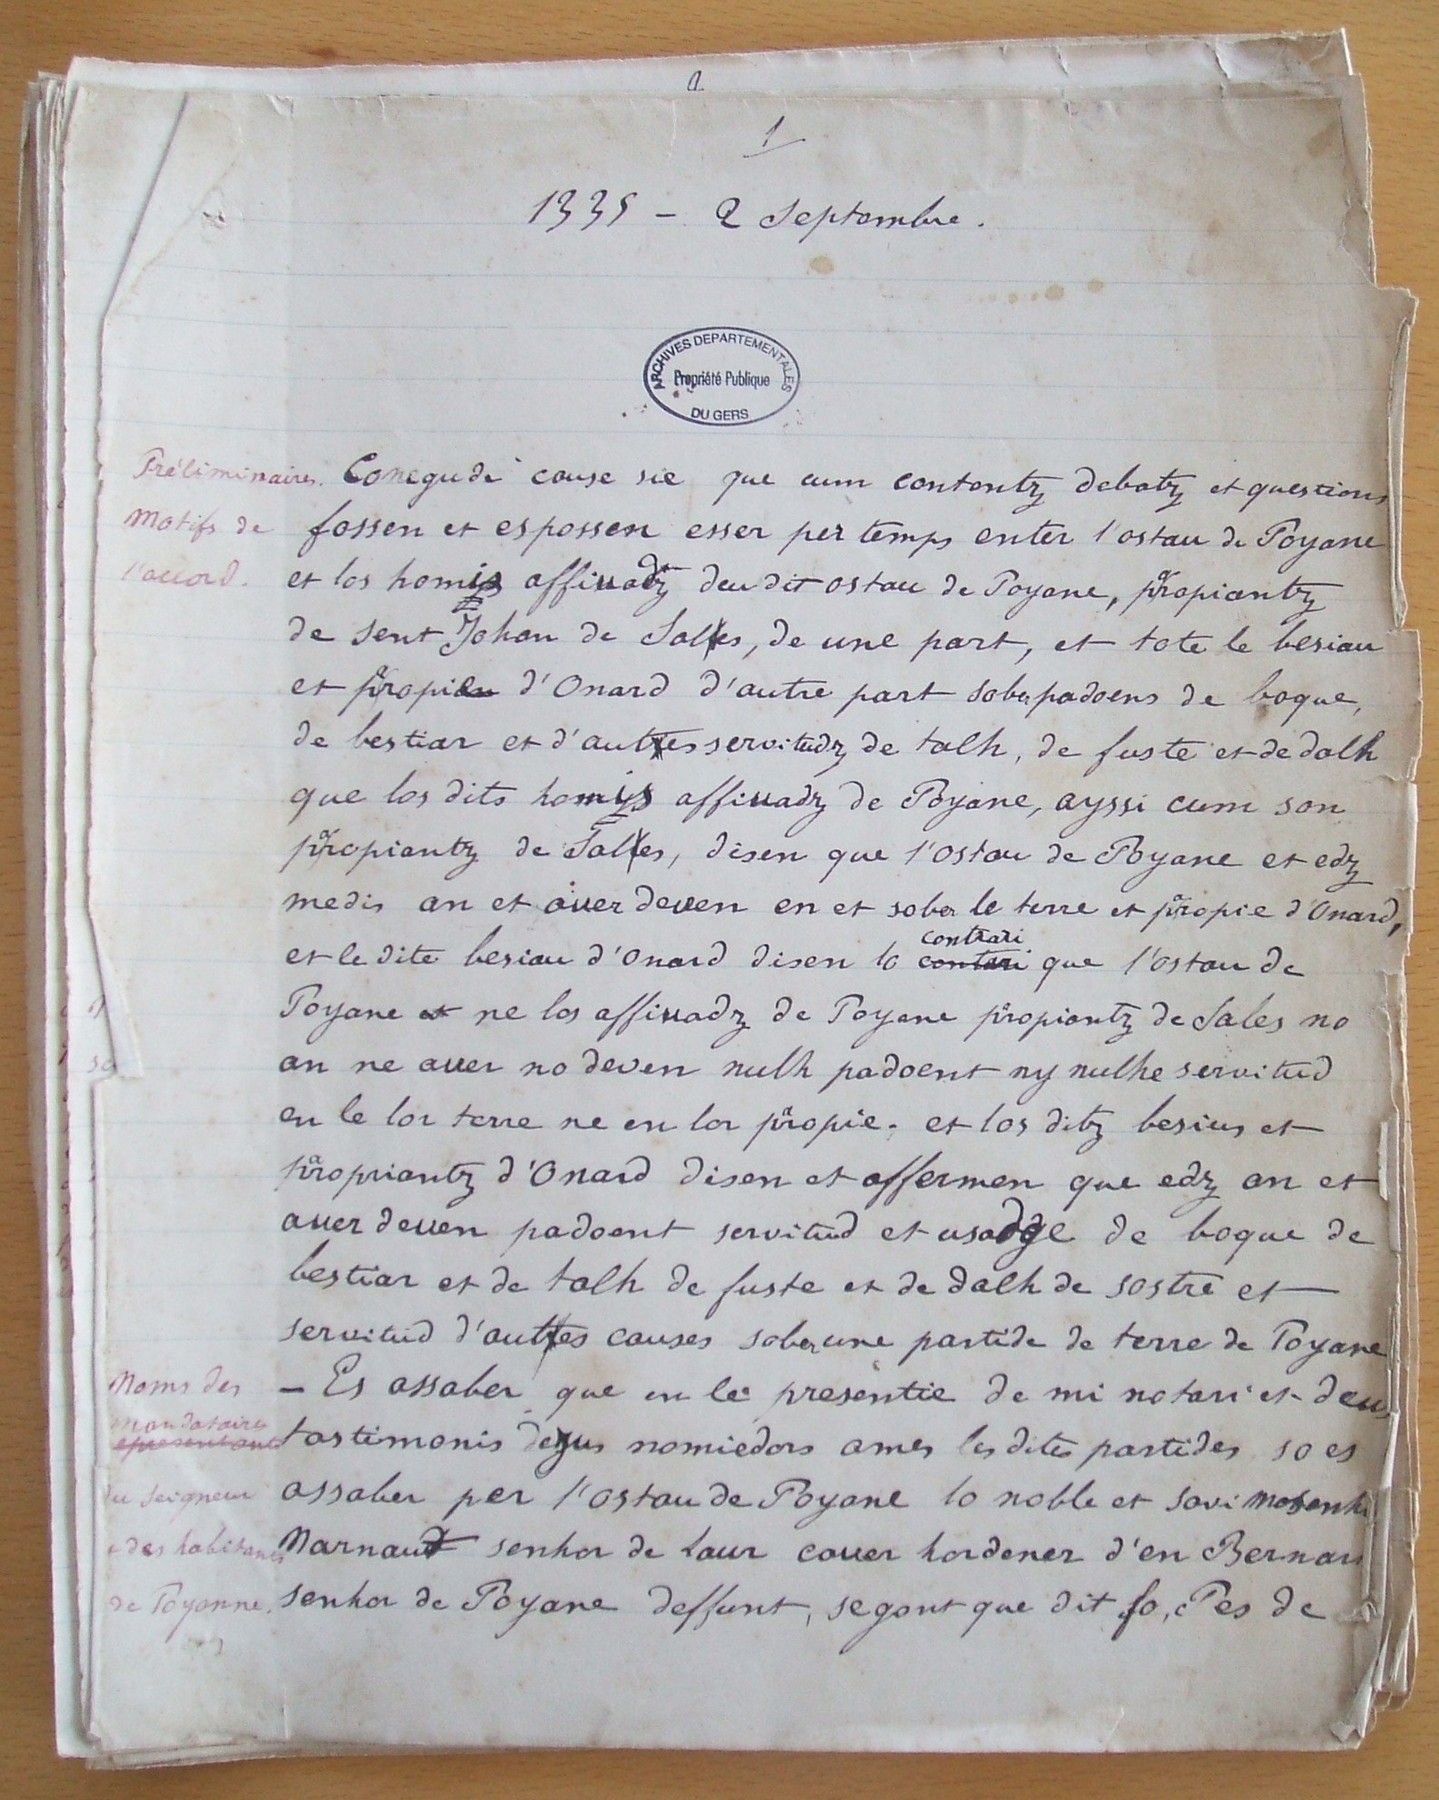 a.
1
1335 - 2 Septembre.
ARCHIVES DEPARTEMENTALES
Propriété Publique
DU GERS
Préliminaires. Conegude cause sie que cum contentz debatz et questions
Motifs de fossen et espossen esser per temps enter l'ostau de Poyane
l'accord. et los homis affiuadz deudit ostau de Poyane, propiantz
de sent Johan de Sales, de une part, et tote le besiau
et propiau d'Onard d'autre part sober padoens de boque,
de bestiar et d'autes servitudz de talh, de fuste et de dalh
que los dits homis affiuadz de Poyane, ayssi cum son
propiantz de Sales, disen que l'ostau de Poyane et edz
medis an et auer deuen en et sober le terre et propie d'Onard,
contrari
et le dite besiau d'Onard disen lo contrari que l'ostau de
Poyane ne los affiuadz de Poyane propiantz de Sales no
an ne auer no deven nulh padoent ny nulhe servitud
en le lor terre ne en lor propie. et los ditz besius et
propriantz d'Onard disen et affermen que edz an et
auer deuen padoent servitud et usadge de boque de
bestiar et de talh de fuste et de dalh de sostre et
servitud d'autes causes sober une partide de terre de Poyane
Noms des - Es assaber que en le presentie de mi notari et deus
mandataires
representants testimonis dejus nomiedors ames les dites partides so es
du seigneur assaber per l'ostau de Poyane lo noble et savi mosenh
des habitants Narnaut senhor de Laur cauer hordener d'en Bernar
de Poyanne. senhor de Poyane deffunt, segont que dit fo, Pes de